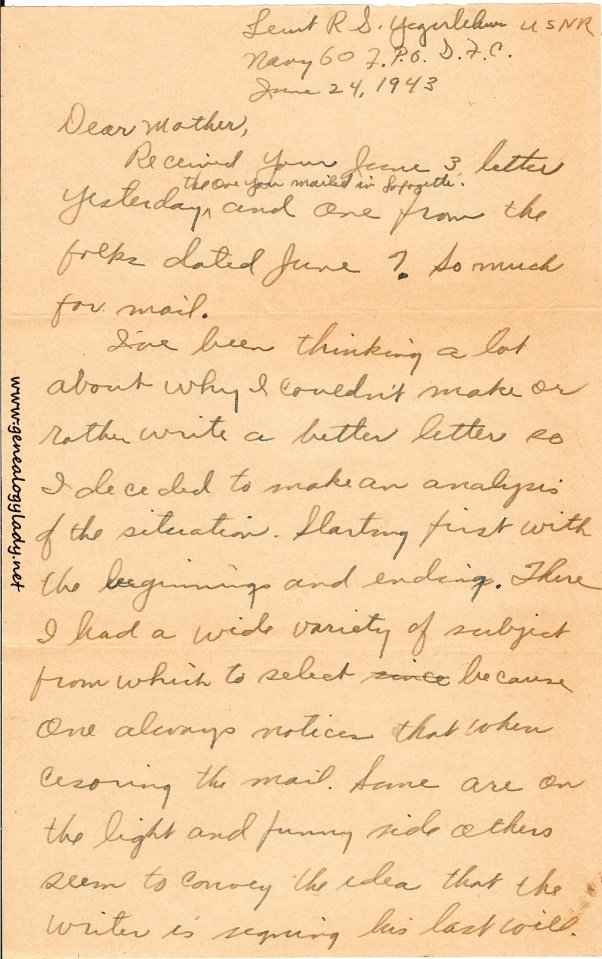 Lieut R S. Yegerlehner USNR
Navy 60 F.P.O. S.F.C.
June 24, 1943
Dear Mother,
Received your June 3 letter
the one you mailed in Lafayette.
yesterday, and one from the
folks dated June 7. So much
for mail.
I've been thinking a lot
about why I couldn't make or
rather write a better letter so
I deceded to make an analysis
of the situation. Starting first with
the beginnings and ending. There
I had a wide variety of subject
from which to select since because
one always notices that when
cesoring the mail. Some are on
the light and funny side others
seem to convey the idea that the
writer is signing his last will.
www.genealogylady.net